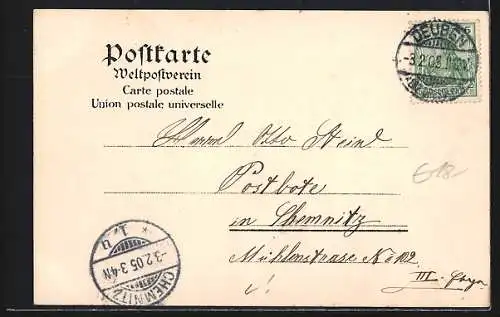 Postkarte
Weltpostverein
Carte postale
Union postale universelle
DEUBEN
Herrn Otto Steinl
Postbote
in Chemnitz
Mühlenstrasse No 102
III.
618
CHEMNITZ
-3.2.05 3-4N